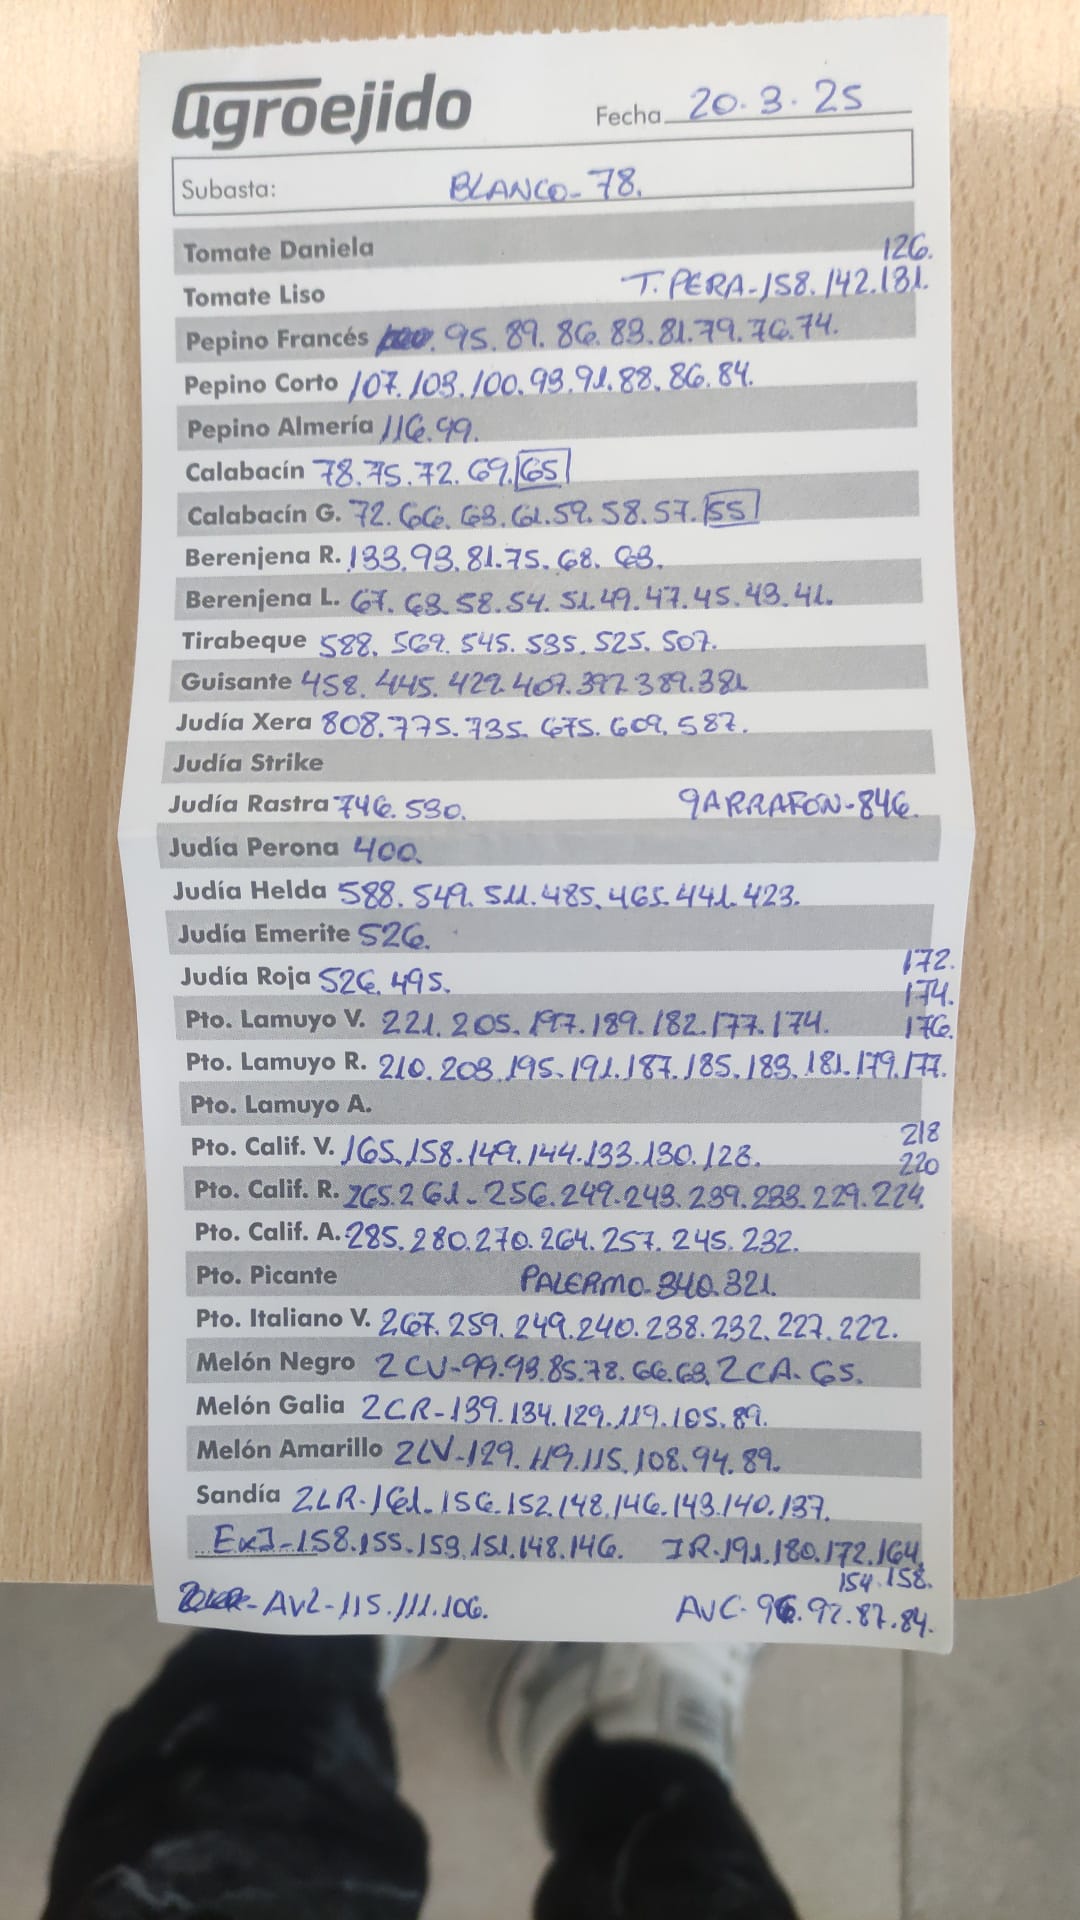 agroejido
Fecha 20.3.25
Subasta: BLANCO-78.
Tomate Daniela 126.
Tomate Liso T.PERA-158.142.131.
Pepino Francés 95.89.86.83.81.79.76.74.
Pepino Corto 107.103.100.93.91.88.86.84.
Pepino Almería 116.99.
Calabacín 78.75.72.69.65
Calabacín G. 72.66.63.61.59.58.57.55
Berenjena R. 133.93.81.75.68.63.
Berenjena L. 67.63.58.54.51.49.47.45.43.41.
Tirabeque 588.569.545.535.525.507.
Guisante 458.445.422.407.397.389.381
Judía Xera 808.775.735.675.609.587.
Judía Strike
Judía Rastra 746.530. GARRAFON-846.
Judía Perona 400.
Judía Helda 588.549.511.485.465.441.423.
Judía Emerite 526.
172.
Judía Roja 526.495.
174.
Pto. Lamuyo V. 221.205.197.189.182.177.174. 176.
Pto. Lamuyo R. 210.203.195.191.187.185.183.181.179.177.
Pto. Lamuyo A.
218
Pto. Calif. V. 165.158.149.144.133.130.128.
220
Pto. Calif. R. 265.261-256.249.243.239.233.229.224.
Pto. Calif. A. 285.280.270.264.257.245.232.
Pto. Picante PALERMO-340.321.
Pto. Italiano V. 267.259.249.240.238.232.227.222.
Melón Negro 2CV-99.93.85.78.66.63. 2CA-65.
Melón Galia 2CR-139.134.129.119.105.89.
Melón Amarillo 2LV-129.119.115.108.94.89.
Sandía 2LR-161-156.152.148.146.143.140.137.
ExJ-158.155.153.151.148.146. JR-191.180.172.164.
154.158.
-AV2-115.111.106. AVC-96.92.87.84.